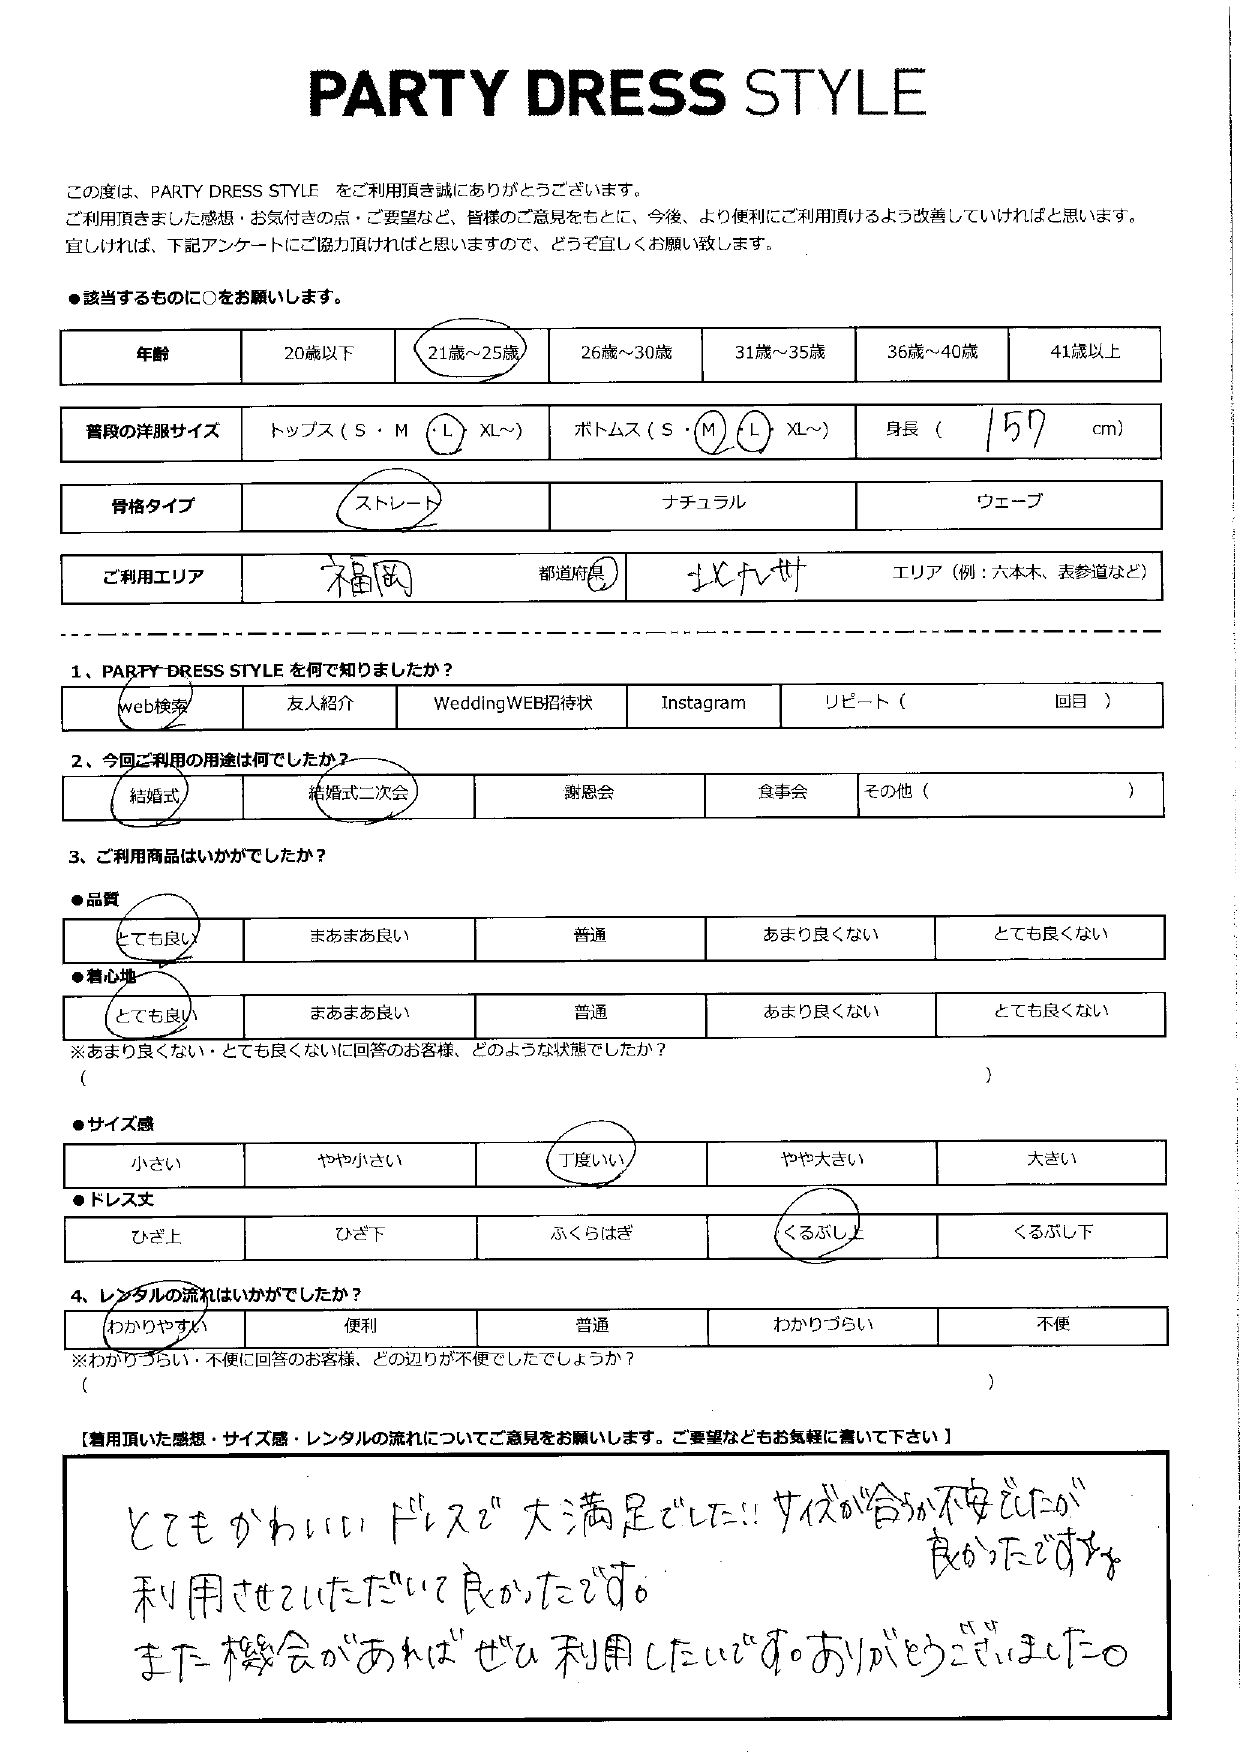 PARTY DRESS STYLE
この度は、PARTY DRESS STYLE をご利用頂き誠にありがとうございます。
ご利用頂きました感想・お気付きの点・ご要望など、皆様のご意見をもとに、今後、より便利にご利用頂けるよう改善していければと思います。
宜しければ、下記アンケートにご協力頂ければと思いますので、どうぞ宜しくお願い致します。
●該当するものに○をお願いします。
年齢 20歳以下 21歳～25歳 26歳～30歳 31歳～35歳 36歳～40歳 41歳以上
普段の洋服サイズ トップス（ S ・ M ・L・ XL～） ボトムス（ S ・M・L・ XL～） 身長 （ 157 cm）
骨格タイプ ストレート ナチュラル ウェーブ
ご利用エリア 福岡 都道府県 北九州 エリア（例：六本木、表参道など）
1、PARTY DRESS STYLE を何で知りましたか？
web検索 友人紹介 WeddingWEB招待状 Instagram リピート（ 回目 ）
2、今回ご利用の用途は何でしたか？
結婚式 結婚式二次会 謝恩会 食事会 その他（ ）
3、ご利用商品はいかがでしたか？
●品質
とても良い まあまあ良い 普通 あまり良くない とても良くない
●着心地
とても良い まあまあ良い 普通 あまり良くない とても良くない
※あまり良くない・とても良くないに回答のお客様、どのような状態でしたか？
（ ）
●サイズ感
小さい やや小さい 丁度いい やや大きい 大きい
●ドレス丈
ひざ上 ひざ下 ふくらはぎ くるぶし上 くるぶし下
4、レンタルの流れはいかがでしたか？
わかりやすい 便利 普通 わかりづらい 不便
※わかりづらい・不便に回答のお客様、どの辺りが不便でしたでしょうか？
（ ）
【着用頂いた感想・サイズ感・レンタルの流れについてご意見をお願いします。ご要望などもお気軽に書いて下さい】
とてもかわいい ドレスで 大満足でした!! サイズが合うか不安でしたが
良かったです
利用させていただいて良かったです。
また機会があればぜひ利用したいです。ありがとうございました。